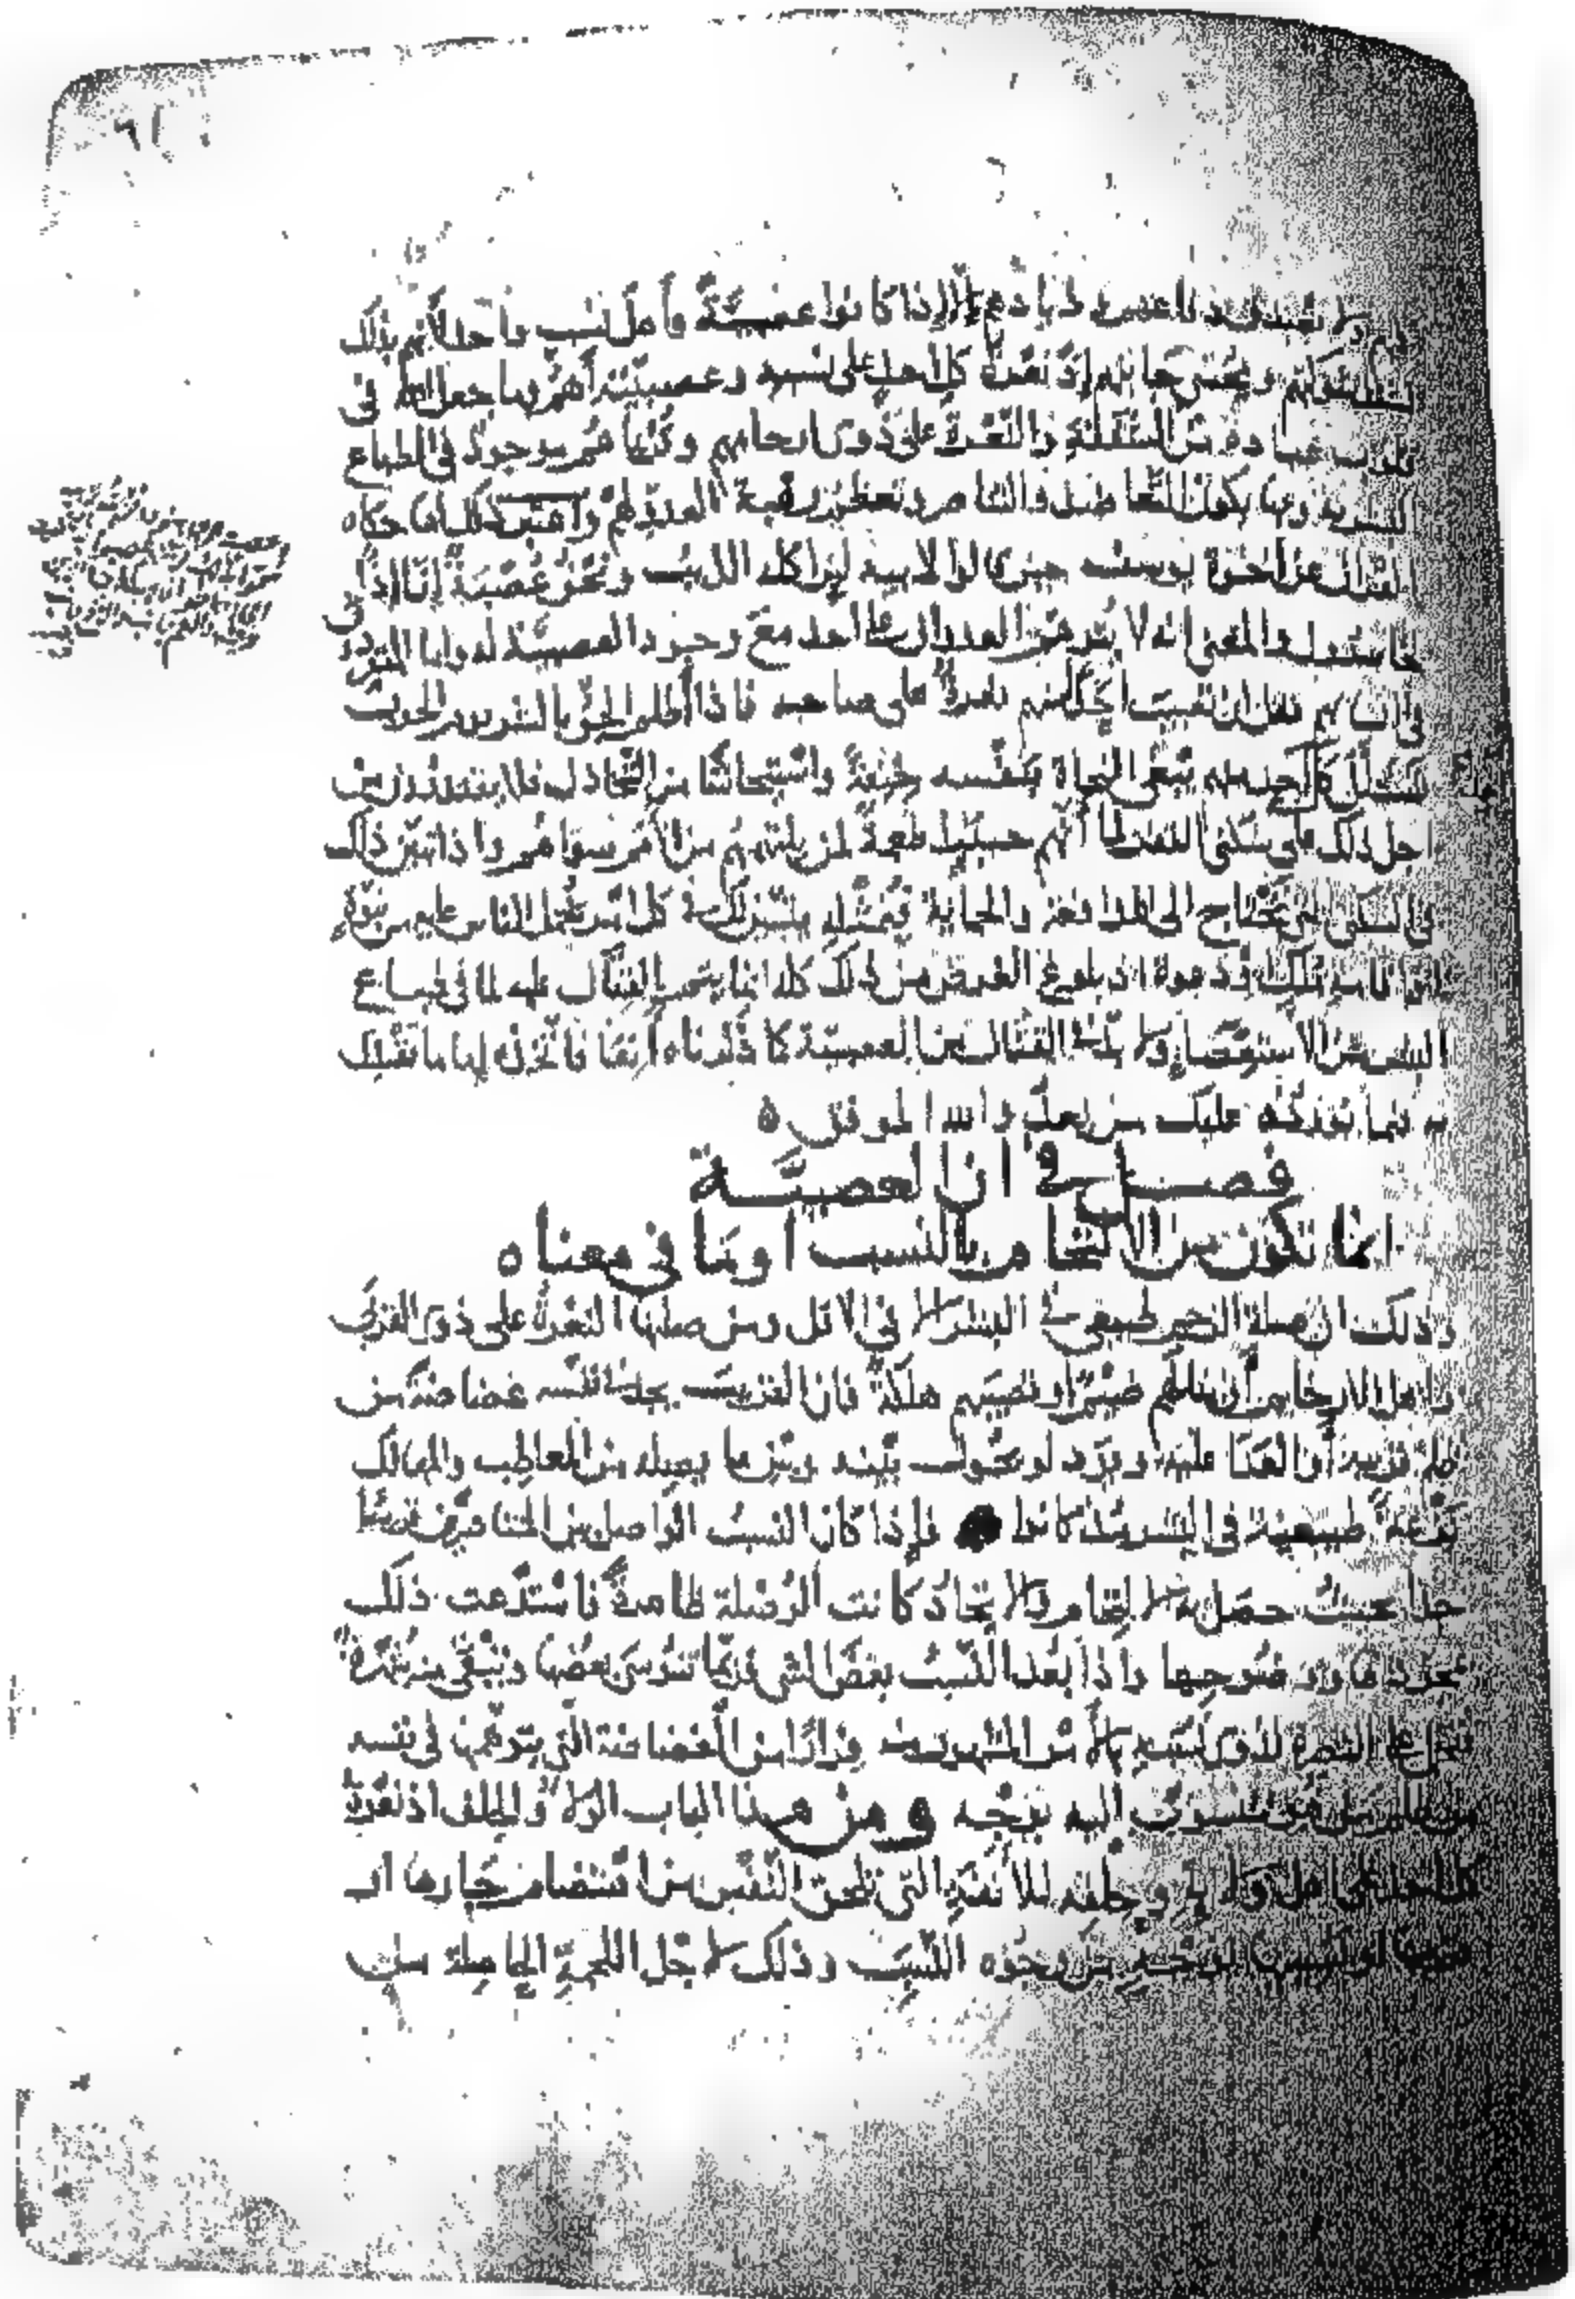 فيهم ولا يصدق دفاعهم وذيادهم إلا إذا كانوا عصبيّةً وأهل نسب واحد لأنهم بذلك
تشتدّ شوكتهم ويُخشى جانبهم إذ نعرة كل أحد على نسبه وعصبيّته أهمّ وما جعل الله في
قلوب عباده من الشفقة والنُّعرة على ذوي أرحامهم وقرباهم موجودة في الطباع
البشرية وبها يكون التعاضد والتناصر وتعظم رهبة العدوّ لهم واعتبر ذلك فيما حكاه
القرآن عن إخوة يوسف حين قالوا لأبيه لئن أكله الذئب ونحن عُصْبَةٌ إنّا إذًا
لخاسرون والمعنى أنه لا يتوهم العدوان على أحد مع وجود العصبيّة له وأما المتفردون
في أنسابهم فقلّ أن تصيب أحدًا منهم نعرةٌ على صاحبه فإذا أظلم الجوّ بالشر يوم الحرب
تسلّل كل أحد منهم يبغي النجاة بنفسه خيفةً واستيحاشًا من التخاذل فلا يقتدرون من
أجل ذلك على سكنى القفر لما أنهم حينئذ طعمةٌ لمن يلتهمهم من الأمم سواهم وإذا تبيّن ذلك
في السكنى التي تحتاج إلى المدافعة والحماية فبمثله يتبيّن لك في كل أمر يُحمل الناس عليه من نبوّة
أو إقامة ملك أو دعوة إذ بلوغ الغرض من ذلك كله إنما يتم بالقتال عليه لما في طباع
البشر من الاستعصاء ولا بدّ في القتال من العصبيّة كما ذكرناه آنفًا فاتخذه إمامًا تقتدي
به فيما نورده عليك من بعد والله الموفق ٥
فصل في أن العصبيّة
إنما تكون من الالتحام بالنسب أو ما في معناه
وذلك أن صلة الرحم طبيعي في البشر إلا في الأقل ومن صلتها النعرة على ذوي القربى
وأهل الأرحام أن ينالهم ضيم أو تصيبهم هلكة فإن القريب يجد في نفسه غضاضة من
ظلم قريبه أو العداء عليه ويودّ لو يحول بينه وبين ما يصله من المعاطب والمهالك
نزعةٌ طبيعية في البشر مذ كانوا فإذا كان النسب الواصل بين المتناصرين قريبًا
جدًا بحيث حصل به الالتحام والاتحاد كانت الوُصلة ظاهرةً فاستدعت ذلك
بمجردها ووضوحها وإذا بَعُد النسب بعض الشيء فربما تنوسي بعضها وتبقى منه شهرةٌ
فتحمل على النصرة لذوي نسبه بالأمر المشهور منه فرارًا من الغضاضة التي يتوهمها في نفسه
من ظلم من هو منسوب إليه بوجه ومن هذا الباب الولاء والحلف إذ نعرة
كل أحد على أهل ولائه وحلفه للأنفة التي تلحق النفس من اهتضام جارها أو
قريبها أو نسيبها بوجه من وجوه النَّسَب وذلك لأجل اللحمة الحاصلة من